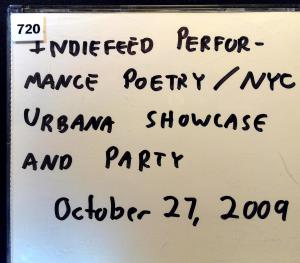 720
INDIEFEED PERFOR-
MANCE POETRY/NYC
URBANA SHOWCASE
AND PARTY
October 27, 2009